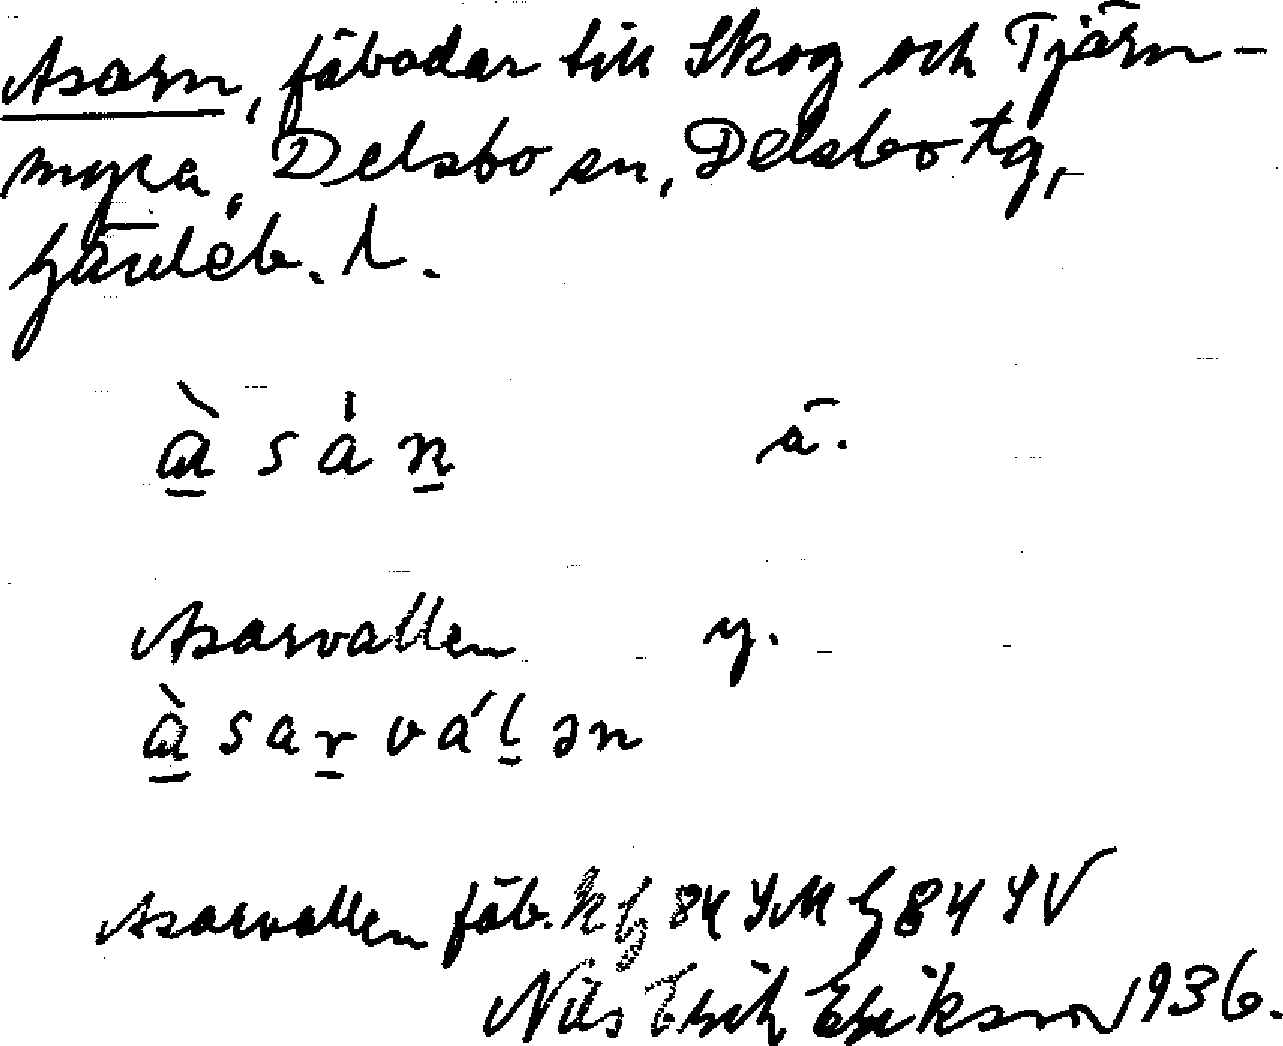 Asarn, fäbodar till Skog och Tjärn-
myra, Delsbo sn, Delsbo tg,
Gävleb. l.
ɑ̠̀ s á n̠ ä.
Asarvallen y.
ɑ̠̀ s a r̠ v á l̠ ə n
Asarvallen fäb. 84 84 SV
Nils Erik Erikson 1936.